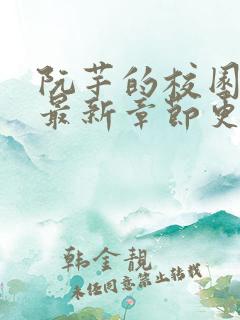 阮芋的校园
最新章节更
韩金靓
未经同意禁止转载